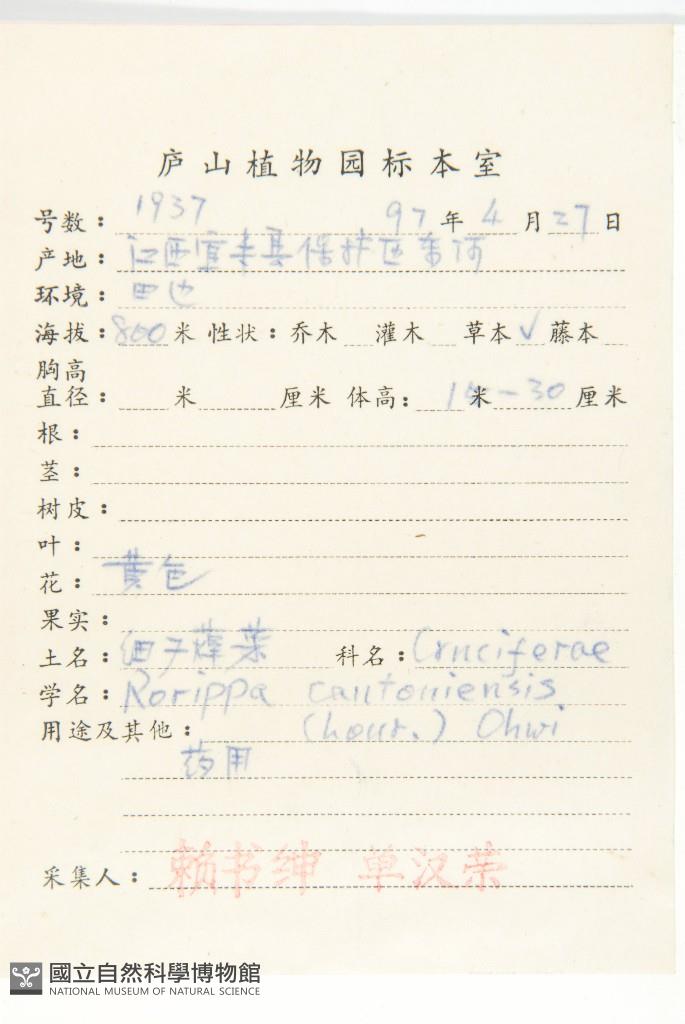 庐山植物园标本室
号数： 1937 97 年 4 月 27 日
产地： 江西宜丰县保护区东河
环境： 田边
海拔： 800 米 性状： 乔木 灌木 草本 √ 藤本
胸高
直径： 米 厘米 体高： 米 —30 厘米
根：
茎：
树皮：
叶：
花： 黄色
果实：
土名： 细子蔊菜 科名： Cruciferae
学名： Rorippa cantoniensis
用途及其他： (Lour.) Ohwi
药用
采集人： 赖书绅 单汉荣
國立自然科學博物館
NATIONAL MUSEUM OF NATURAL SCIENCE